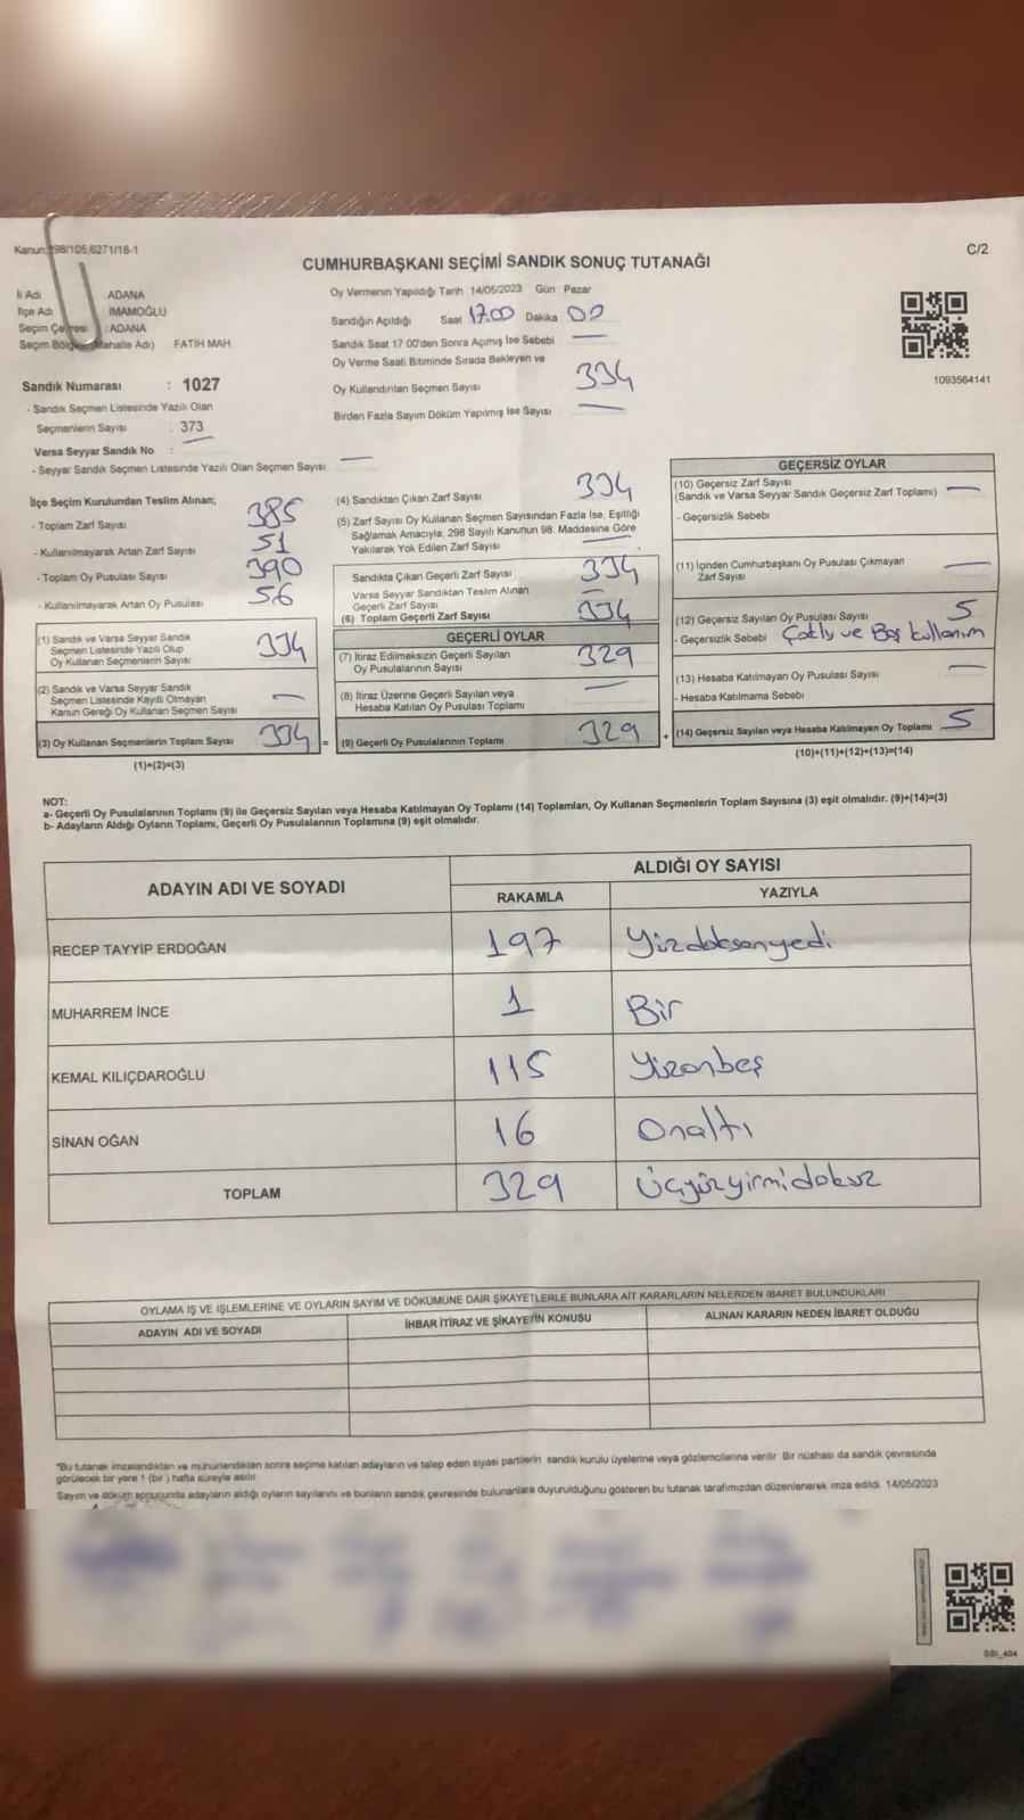 Kanun:298/105,6271/18-1
C/2
CUMHURBAŞKANI SEÇİMİ SANDIK SONUÇ TUTANAĞI
İl Adı ADANA
İlçe Adı İMAMOĞLU
Seçim Çevresi : ADANA
Seçim Bölgesi (Mahalle Adı) FATİH MAH.
Sandık Numarası : 1027
- Sandık Seçmen Listesinde Yazılı Olan
Seçmenlerin Sayısı : 373
Varsa Seyyar Sandık No :
- Seyyar Sandık Seçmen Listesinde Yazılı Olan Seçmen Sayısı —
Oy Vermenin Yapıldığı Tarih 14/05/2023 Gün Pazar
Sandığın Açıldığı Saat 17.00 Dakika 00
Sandık Saat 17 00'den Sonra Açılmış İse Sebebi —
Oy Verme Saati Bitiminde Sırada Bekleyen ve
Oy Kullandırılan Seçmen Sayısı 334
Birden Fazla Sayım Döküm Yapılmış İse Sayısı —
1093564141
İlçe Seçim Kurulundan Teslim Alınan;
- Toplam Zarf Sayısı 385
- Kullanılmayarak Artan Zarf Sayısı 51
- Toplam Oy Pusulası Sayısı 390
- Kullanılmayarak Artan Oy Pusulası 56
(1) Sandık ve Varsa Seyyar Sandık
Seçmen Listesinde Yazılı Olup
Oy Kullanan Seçmenlerin Sayısı 334
(2) Sandık ve Varsa Seyyar Sandık
Seçmen Listesinde Kayıtlı Olmayan
Kanun Gereği Oy Kullanan Seçmen Sayısı —
(3) Oy Kullanan Seçmenlerin Toplam Sayısı 334 =
(1)+(2)=(3)
(4) Sandıktan Çıkan Zarf Sayısı 334
(5) Zarf Sayısı Oy Kullanan Seçmen Sayısından Fazla İse, Eşitliği
Sağlamak Amacıyla, 298 Sayılı Kanunun 98. Maddesine Göre
Yakılarak Yok Edilen Zarf Sayısı —
Sandıkta Çıkan Geçerli Zarf Sayısı 334
Varsa Seyyar Sandıktan Teslim Alınan
Geçerli Zarf Sayısı —
(6) Toplam Geçerli Zarf Sayısı 334
GEÇERLİ OYLAR
(7) İtiraz Edilmeksizin Geçerli Sayılan
Oy Pusulalarının Sayısı 329
(8) İtiraz Üzerine Geçerli Sayılan veya
Hesaba Katılan Oy Pusulası Toplamı —
(9) Geçerli Oy Pusulalarının Toplamı 329 +
GEÇERSİZ OYLAR
(10) Geçersiz Zarf Sayısı
(Sandık ve Varsa Seyyar Sandık Geçersiz Zarf Toplamı) —
- Geçersizlik Sebebi
(11) İçinden Cumhurbaşkanı Oy Pusulası Çıkmayan
Zarf Sayısı —
(12) Geçersiz Sayılan Oy Pusulası Sayısı 5
- Geçersizlik Sebebi Çoklu ve Boş kullanım
(13) Hesaba Katılmayan Oy Pusulası Sayısı —
- Hesaba Katılmama Sebebi
(14) Geçersiz Sayılan veya Hesaba Katılmayan Oy Toplamı 5
(10)+(11)+(12)+(13)=(14)
NOT:
a- Geçerli Oy Pusulalarının Toplamı (9) ile Geçersiz Sayılan veya Hesaba Katılmayan Oy Toplamı (14) Toplamları, Oy Kullanan Seçmenlerin Toplam Sayısına (3) eşit olmalıdır. (9)+(14)=(3)
b- Adayların Aldığı Oyların Toplamı, Geçerli Oy Pusulalarının Toplamına (9) eşit olmalıdır.
ADAYIN ADI VE SOYADI
ALDIĞI OY SAYISI
RAKAMLA YAZIYLA
RECEP TAYYİP ERDOĞAN 197 Yüzdoksanyedi
MUHARREM İNCE 1 Bir
KEMAL KILIÇDAROĞLU 115 Yüzonbeş
SİNAN OĞAN 16 Onaltı
TOPLAM 329 Üçyüzyirmidokuz
OYLAMA İŞ VE İŞLEMLERİNE VE OYLARIN SAYIM VE DÖKÜMÜNE DAİR ŞİKAYETLERLE BUNLARA AİT KARARLARIN NELERDEN İBARET BULUNDUKLARI
ADAYIN ADI VE SOYADI İHBAR İTİRAZ VE ŞİKAYETİN KONUSU ALINAN KARARIN NEDEN İBARET OLDUĞU
"Bu tutanak imzalandıktan ve mühürlendikten sonra seçime katılan adayların ve talep eden siyasi partilerin sandık kurulu üyelerine veya gözlemcilerine verilir. Bir nüshası da sandık çevresinde
görülecek bir yere 1 (bir) hafta süreyle asılır
Sayım ve döküm sonucunda adayların aldığı oyların sayılarını ve bunların sandık çevresinde bulunanlara duyurulduğunu gösteren bu tutanak tarafımızdan düzenlenerek imza edildi. 14/05/2023